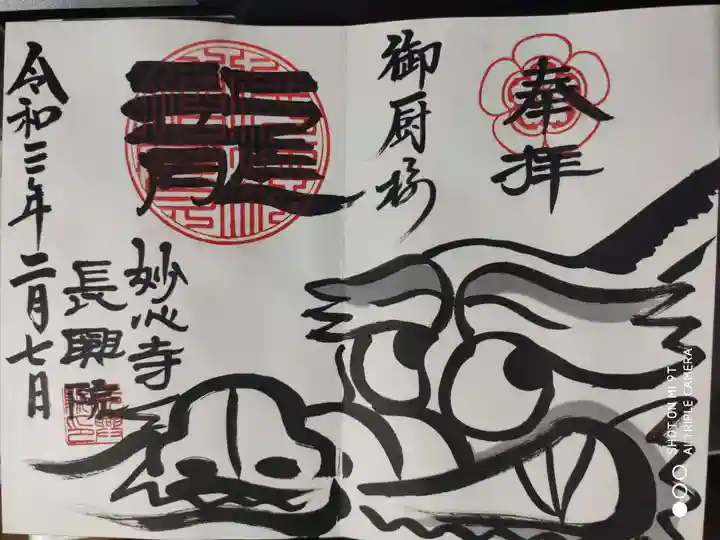 奉拝
御厨様
龍
妙心寺
長興院
令和三年二月七日
SHOT ON MI 9T
AI TRIPLE CAMERA